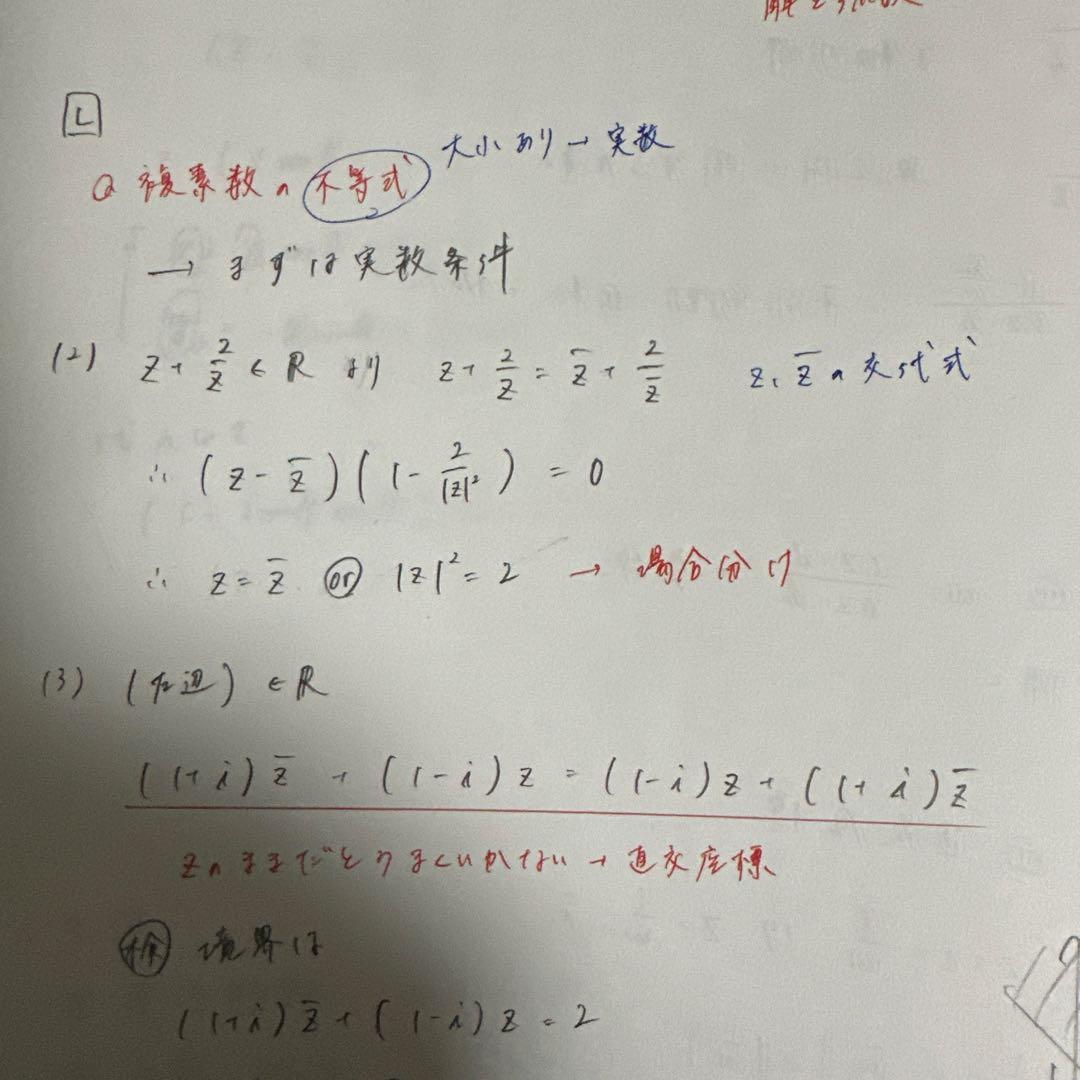 L
大小あり→実数
Q 複素数の不等式
→ まずは実数条件
(2) z + 2/z ∈ R より z + 2/z = z̄ + 2/z̄ z, z̄ の交代式
∴ (z - z̄)(1 - 2/|z|²) = 0
∴ z = z̄ or |z|² = 2 → 場合分け
(3) (左辺) ∈ R
(1+i)z̄ + (1-i)z = (1-i)z + (1+i)z̄
zのままだとうまくいかない→直交座標
境界は
(1+i)z̄ + (1-i)z = 2